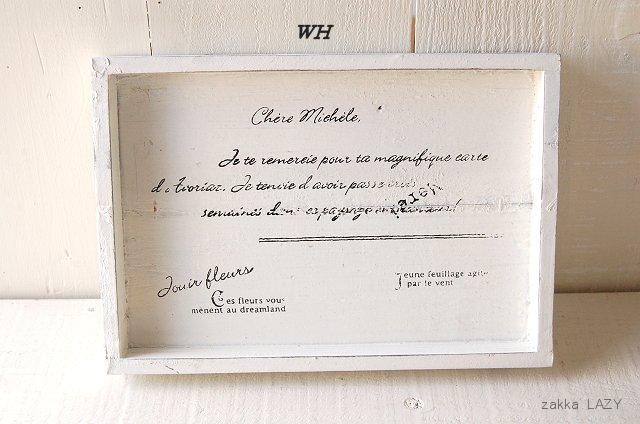 WH
Chère Michèle,
Je te remercie pour ta magnifique carte
d'Avoriaz. Je t'envie d'avoir passé trois
semaines
Jouir fleurs
Ces fleurs vous
menent au dreamland
Jeune feuillage agité
par le vent
zakka LAZY